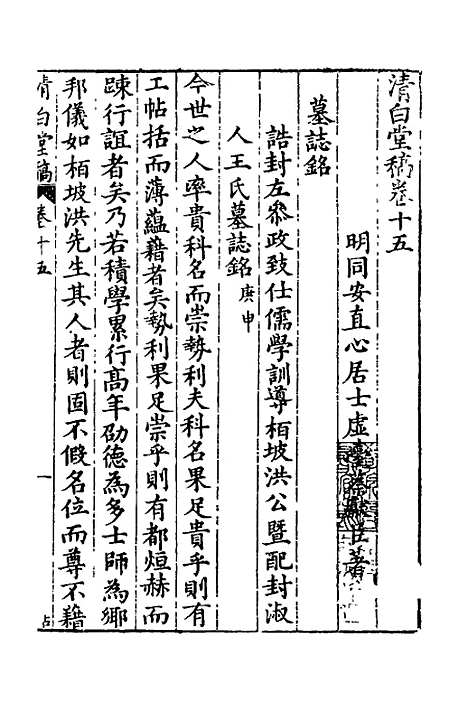 清白堂稿卷十五
明同安直心居士虛臺蔡獻臣著
墓誌銘
誥封左叅政致仕儒學訓導栢坡洪公暨配封淑
人王氏墓誌銘庚申
今世之人率貴科名而崇勢利夫科名果足貴乎則有
工帖括而薄蘊藉者矣勢利果足崇乎則有都烜赫而
踈行誼者矣乃若積學累行高年劭德為多士師為鄉
邦儀如栢坡洪先生其人者則固不假名位而尊不藉
清白堂稿 卷十五 一